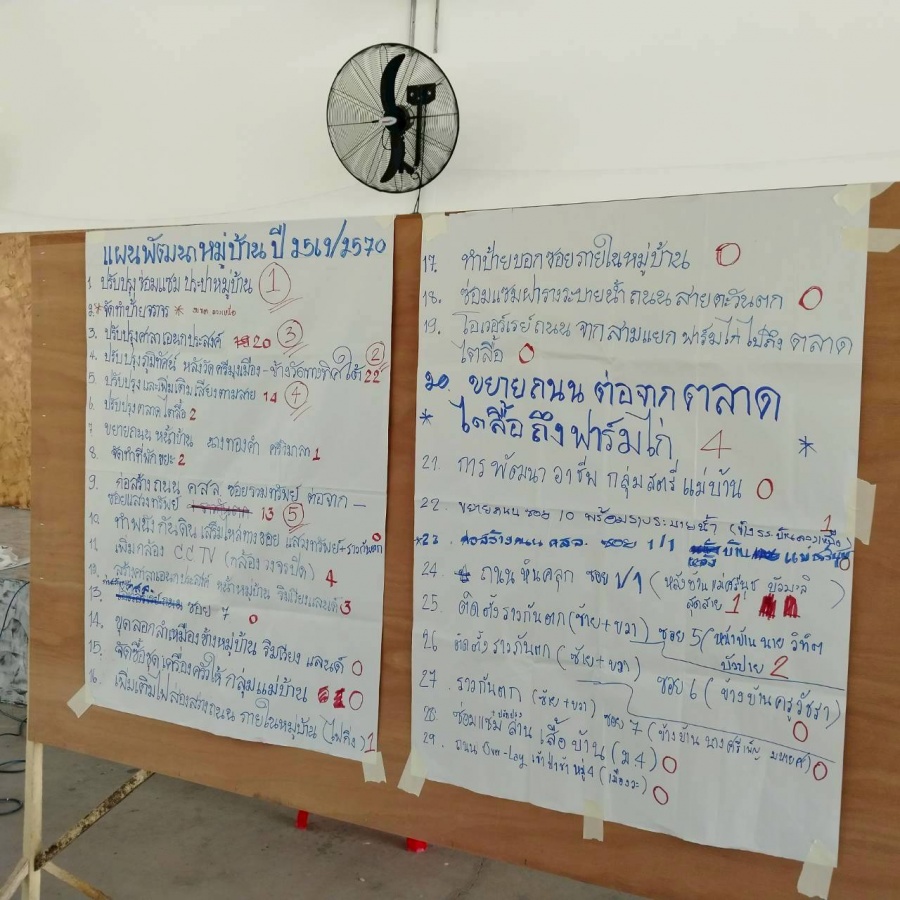 แผนพัฒนาหมู่บ้าน ปี 2569/2570
1. ปรับปรุง ซ่อมแซม ประปาหมู่บ้าน 1
2. * จัดทำป้ายจราจร *
3. ปรับปรุงศาลาเอนกประสงค์ 20 3
4. ปรับปรุงภูมิทัศน์ หลังวัดศรีมุงเมือง - ข้างวัดทางทิศใต้ 22 2
5. ปรับปรุง และเพิ่มเติมเสียงตามสาย 14 4
6. ปรับปรุงตลาดไตลื้อ 2
7. ขยายถนน หน้าบ้าน นางทองคำ 1
8. จัดทำที่พักขยะ 2
9. ก่อสร้างถนน คสล. ซอยรวมทรัพย์ ต่อจาก -
ซอยแสงทรัพย์ 13 5
10. ทำพนังกันดิน เสริมไหล่ทาง ซอย แสงทรัพย์ + ราวกันตก 0
11. เพิ่มกล้อง CCTV (กล้องวงจรปิด) 4
12. สร้างศาลาเอนกประสงค์ หน้าหมู่บ้าน ริมเวียงแลนด์ 3
13. ซอย 7 0
14. ขุดลอกลำเหมืองข้างหมู่บ้าน ริมเวียง แลนด์ 0
15. จัดซื้อชุดเครื่องครัวให้ กลุ่มแม่บ้าน 0
16. เพิ่มเติมไฟส่องสว่างถนน ภายในหมู่บ้าน (ไฟกิ่ง) 1
17. ทำป้ายบอกซอยภายในหมู่บ้าน 0
18. ซ่อมแซมฝารางระบายน้ำ ถนน สายตะวันตก 0
19. โอเวอร์เรย์ถนน จากสามแยก ฟาร์มไก่ ไปถึง ตลาด
ไตลื้อ 0
20. ขยายถนน ต่อจากตลาด
* ไตลื้อ ถึงฟาร์มไก่ 4 *
21. การ พัฒนา อาชีพ กลุ่มสตรี แม่บ้าน 0
22. ขยายถนน ซอย 10 พร้อมรางระบายน้ำ 1
*23. ก่อสร้างถนน คสล. ซอย 1/1 0
24. ถนน หินคลุก ซอย 1/1 (หลังบ้านแม่ศรีนุช บัวมะลิ)
สุดสาย 1
25. ติดตั้งราวกันตก (ซ้าย + ขวา) ซอย 5 (หน้าบ้าน นาย
บัวปาย 2
26. ติดตั้งราวกันตก (ซ้าย + ขวา) ซอย 6 (ข้างบ้านครูวัชรา) 0
27. ราวกันตก (ซ้าย + ขวา) ซอย 7 (ข้างบ้าน นางศรีเพ็ญ 0
28. ซ่อมแซม ปรับปรุง ลาน เสื้อบ้าน (ม.4) 0
29. ถนน Over-Lay เข้าป่าช้า หมู่ 4 0